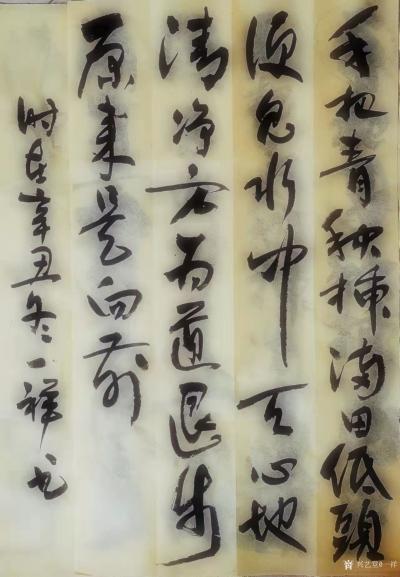 手把青秧插满田低頭
便见水中天心地
清净方为道退步
原来是向前
时在辛丑冬一祥书
兴艺堂@一祥